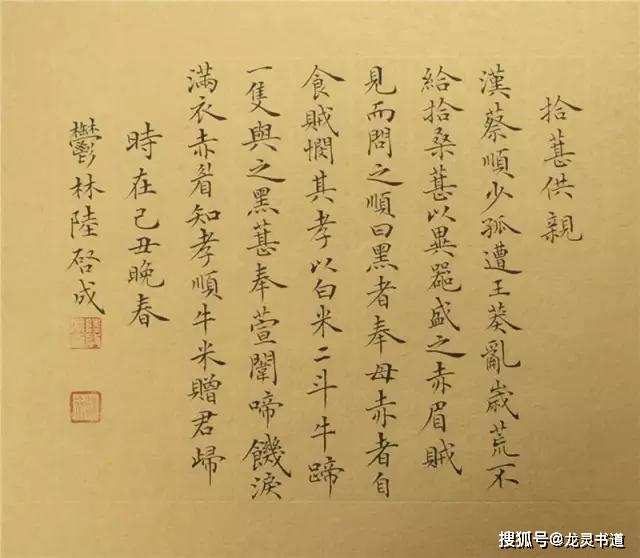 拾葚供親
漢蔡順少孤遭王莽亂歲荒不
給拾桑葚以異器盛之赤眉賊
見而問之順曰黑者奉母赤者自
食賊憫其孝以白米二斗牛蹄
一隻與之黑葚奉萱闈啼饑淚
滿衣赤眉知孝順牛米贈君歸
時在己丑晚春
鬱林陸啓成
搜狐号@龙灵书道